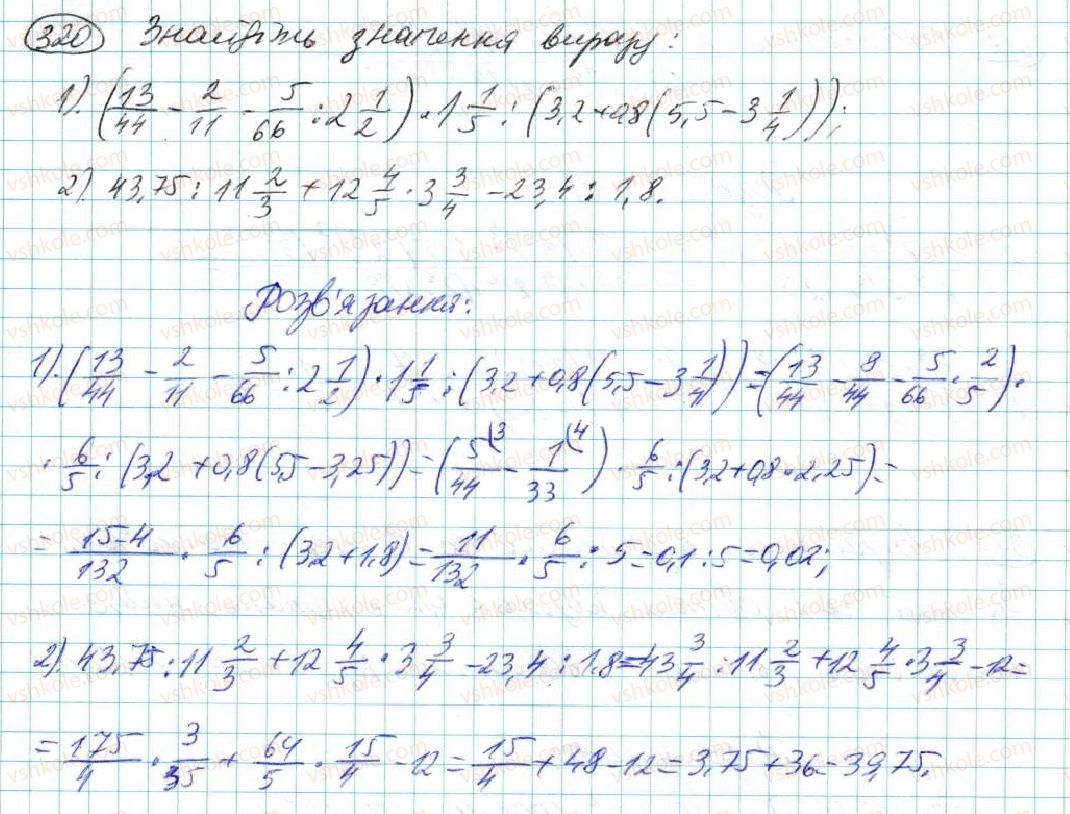 320 Знайдіть значення виразу:
1). (13/44 - 2/11 - 5/66 : 2 1/2) · 1 1/5 : (3,2 + 0,8(5,5 - 3 1/4));
2). 43,75 : 11 2/3 + 12 4/5 · 3 3/4 - 23,4 : 1,8.
Розв'язання:
1). (13/44 - 2/11 - 5/66 : 2 1/2) · 1 1/5 : (3,2 + 0,8(5,5 - 3 1/4)) = (13/44 - 8/44 - 5/66 · 2/5) ·
· 6/5 : (3,2 + 0,8(5,5 - 3,25)) = (5(3/44 - 1(4/33) · 6/5 : (3,2 + 0,8 · 2,25) =
= 15-4/132 · 6/5 : (3,2 + 1,8) = 11/132 · 6/5 : 5 = 0,1 : 5 = 0,02;
2). 43,75 : 11 2/3 + 12 4/5 · 3 3/4 - 23,4 : 1.8 = 43 3/4 : 11 2/3 + 12 4/5 · 3 3/4 - 12 =
= 175/4 · 3/35 + 64/5 · 15/4 - 12 = 15/4 + 48 - 12 = 3,75 + 36 = 39,75.